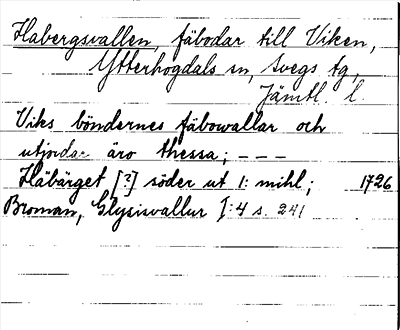 Habergsvallen, fäbodar till Viken,
Ytterhogdals sn, Svegs tg,
Jämtl. l.
Viks böndernes fäbowallar och
utjordar äro thessa; - - -
Häbärget [?] söder ut 1: mihl; 1726
Broman, Glysisvallur I:4 s. 241